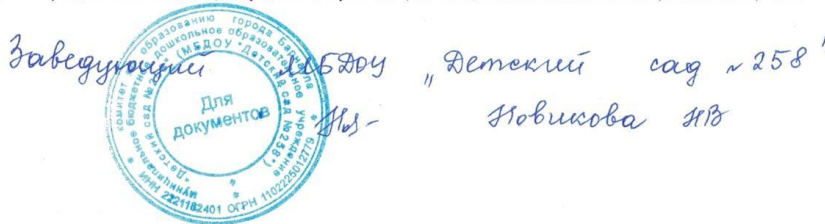 Заведующий МБДОУ „Детский сад №258"
Новикова НВ
комитет по образованию города Барнаула
муниципальное бюджетное дошкольное образовательное учреждение
"Детский сад №258" (МБДОУ "Детский сад №258")
ИНН 2221182401 ОГРН 1102225012779
Для
документов